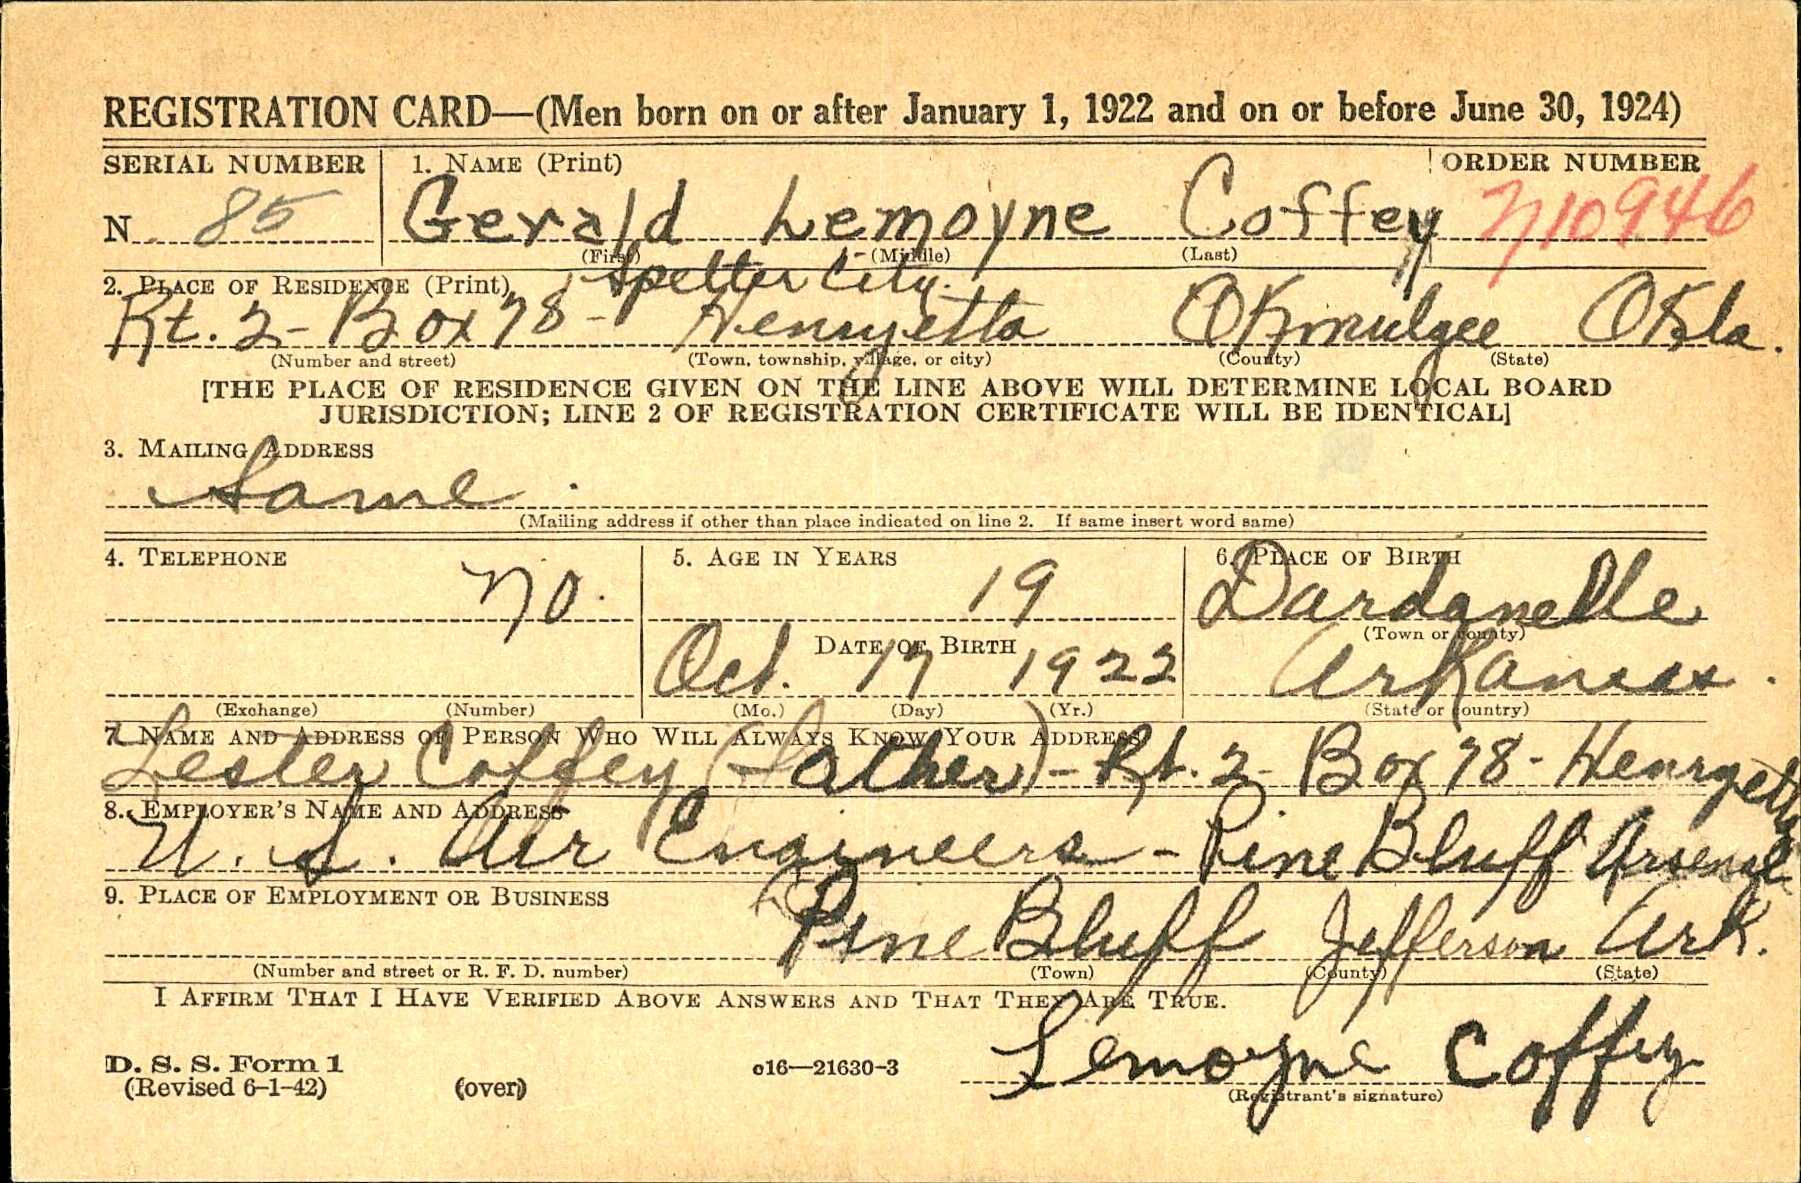 REGISTRATION CARD—(Men born on or after January 1, 1922 and on or before June 30, 1924)
SERIAL NUMBER 1. NAME (Print) ORDER NUMBER
N 85 Gerald Lemoyne Coffey N10946
(First) (Middle) (Last)
Spelter City.
2. PLACE OF RESIDENCE (Print)
Rt. 2 - Box 78 - Henryetta Okmulgee Okla.
(Number and street) (Town, township, village, or city) (County) (State)
[THE PLACE OF RESIDENCE GIVEN ON THE LINE ABOVE WILL DETERMINE LOCAL BOARD
JURISDICTION; LINE 2 OF REGISTRATION CERTIFICATE WILL BE IDENTICAL]
3. MAILING ADDRESS
Same.
(Mailing address if other than place indicated on line 2. If same insert word same)
4. TELEPHONE 5. AGE IN YEARS 6. PLACE OF BIRTH
no. 19 Dardanelle
(Town or county)
DATE OF BIRTH
Oct. 17 1922 Arkansas.
(Exchange) (Number) (Mo.) (Day) (Yr.) (State or country)
7. NAME AND ADDRESS OF PERSON WHO WILL ALWAYS KNOW YOUR ADDRESS
Lester Coffey (father) - Rt. 2 - Box 78 - Henryetta
8. EMPLOYER'S NAME AND ADDRESS
U. S. Air Engineers - Pine Bluff Arsenal
9. PLACE OF EMPLOYMENT OR BUSINESS
Pine Bluff Jefferson Ark.
(Number and street or R. F. D. number) (Town) (County) (State)
I AFFIRM THAT I HAVE VERIFIED ABOVE ANSWERS AND THAT THEY ARE TRUE.
Lemoyne Coffey
D. S. S. Form 1
(Revised 6-1-42) (over) c16—21630-3 (Registrant's signature)